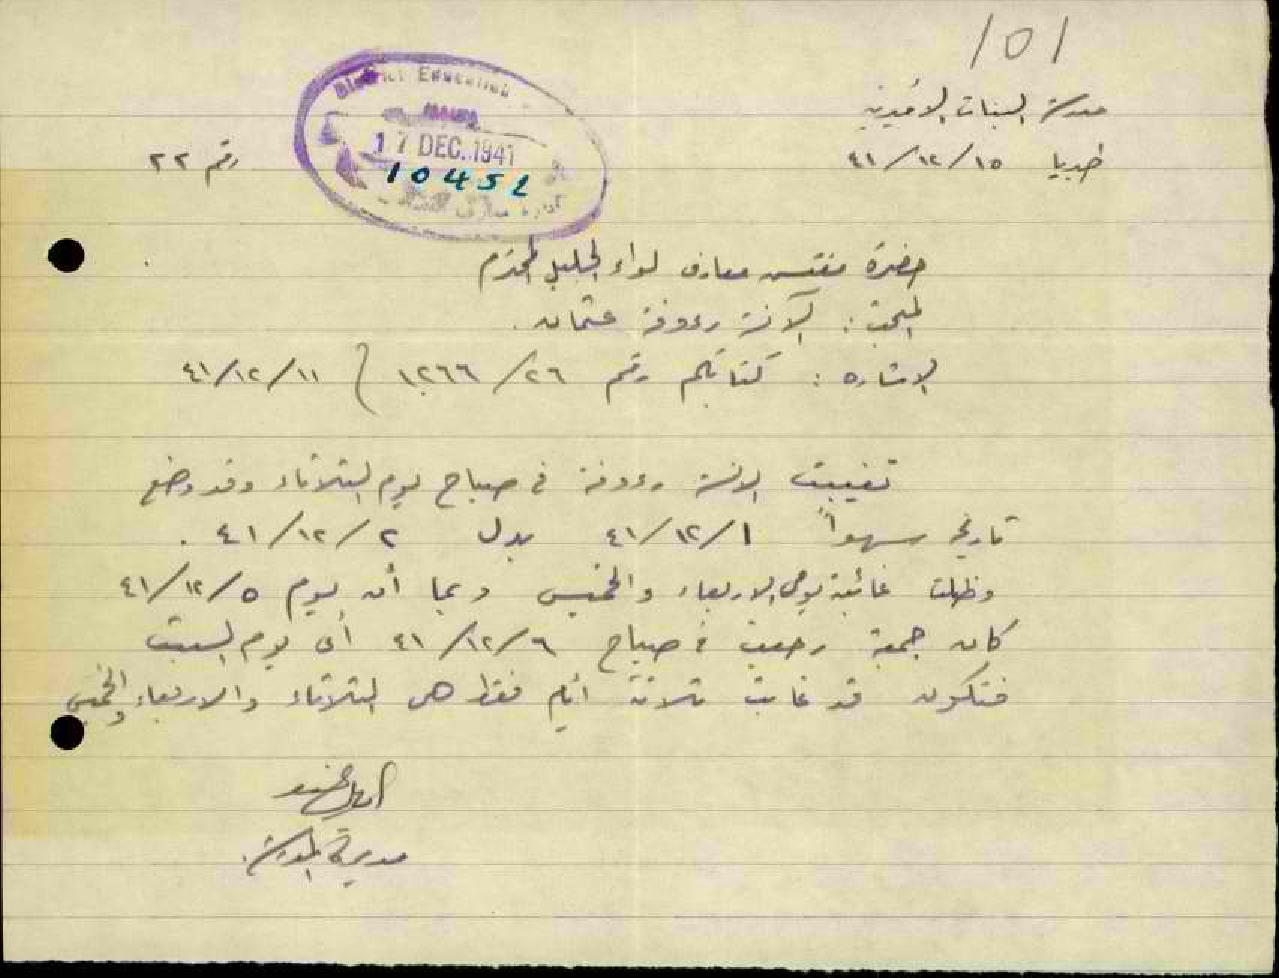 101
مدرسة البنات الاميرية
طبريا ١٥/١٢/٤١
رقم ٢٢
District Education
HAIFA
17 DEC. 1941
10452
حضرة مفتش معارف لواء الجليل المحترم
المبحث : الآنسة رءوفة عثمان .
الاشاره : كتابكم رقم ٢٦/١٢٦٦ ١١/١٢/٤١
تغيبت الانسة رءوفة في صباح يوم الثلاثاء وقد وضع
تاريخ سهواً ١/١٢/٤١ بدل ٢/١٢/٤١ .
وظلت غائبة يومي الاربعاء والخميس وبما أن يوم ٥/١٢/٤١
كان جمعة رجعت في صباح ٦/١٢/٤١ أي يوم السبت
فتكون قد غابت ثلاثة أيام فقط هي الثلاثاء والاربعاء والخميس
مديرة المدرسة.